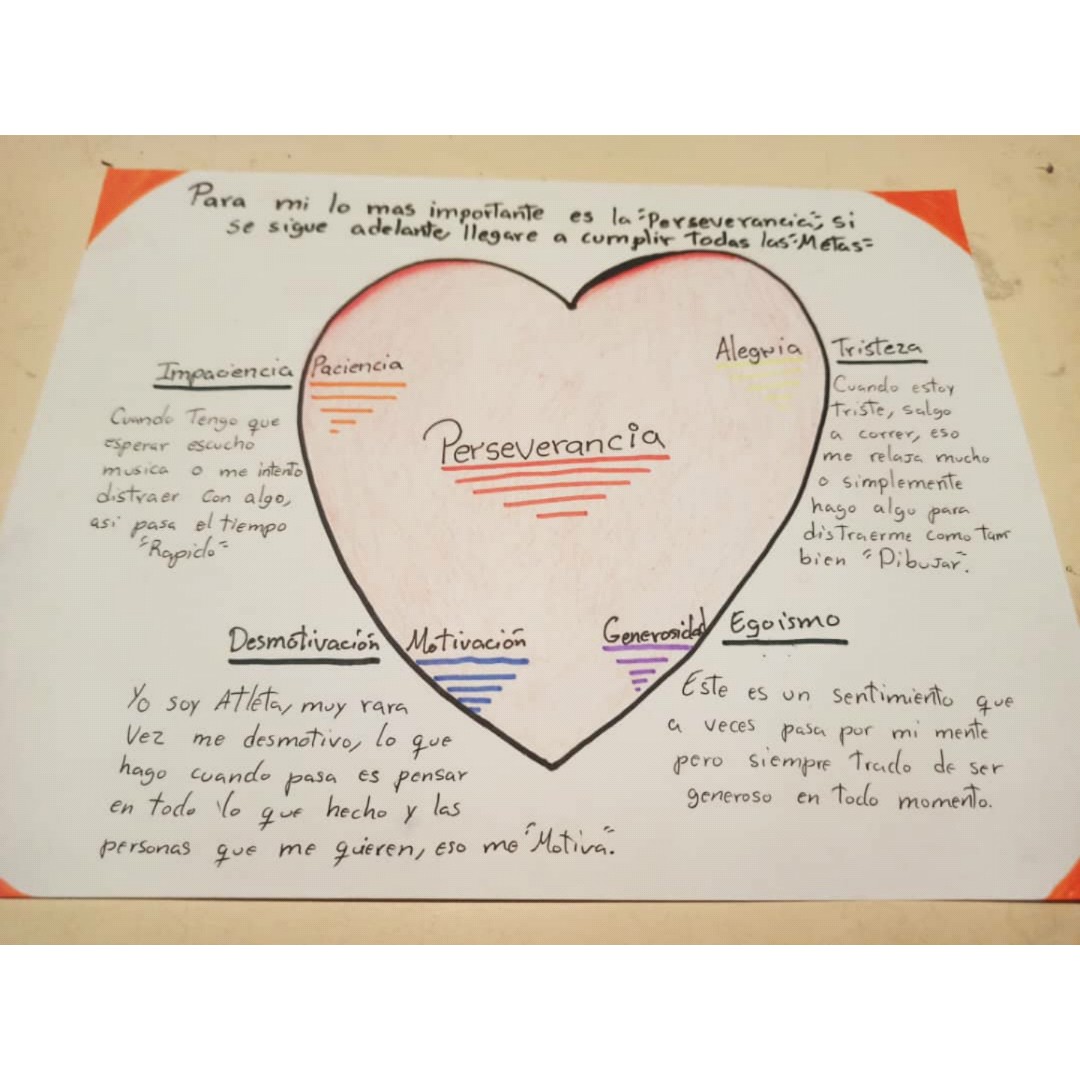 Para mi lo mas importante es la "Perseverancia", si
se sigue adelante llegare a cumplir Todas las "Metas"
Impaciencia
Cuando Tengo que
esperar escucho
musica o me intento
distraer con algo,
asi pasa el tiempo
"Rapido"
Paciencia
Perseverancia
Alegria
Tristeza
Cuando estoy
triste, salgo
a correr, eso
me relaja mucho
o simplemente
hago algo para
disTraerme como Tam
bien "Dibujar".
Desmotivación
Yo soy Atleta, muy rara
Vez me desmotivo, lo que
hago cuando pasa es pensar
en todo lo que hecho y las
personas que me quieren, eso me "Motiva".
Motivación
Generosidad
Egoismo
Este es un sentimiento que
a veces pasa por mi mente
pero siempre Trado de ser
generoso en Todo momento.